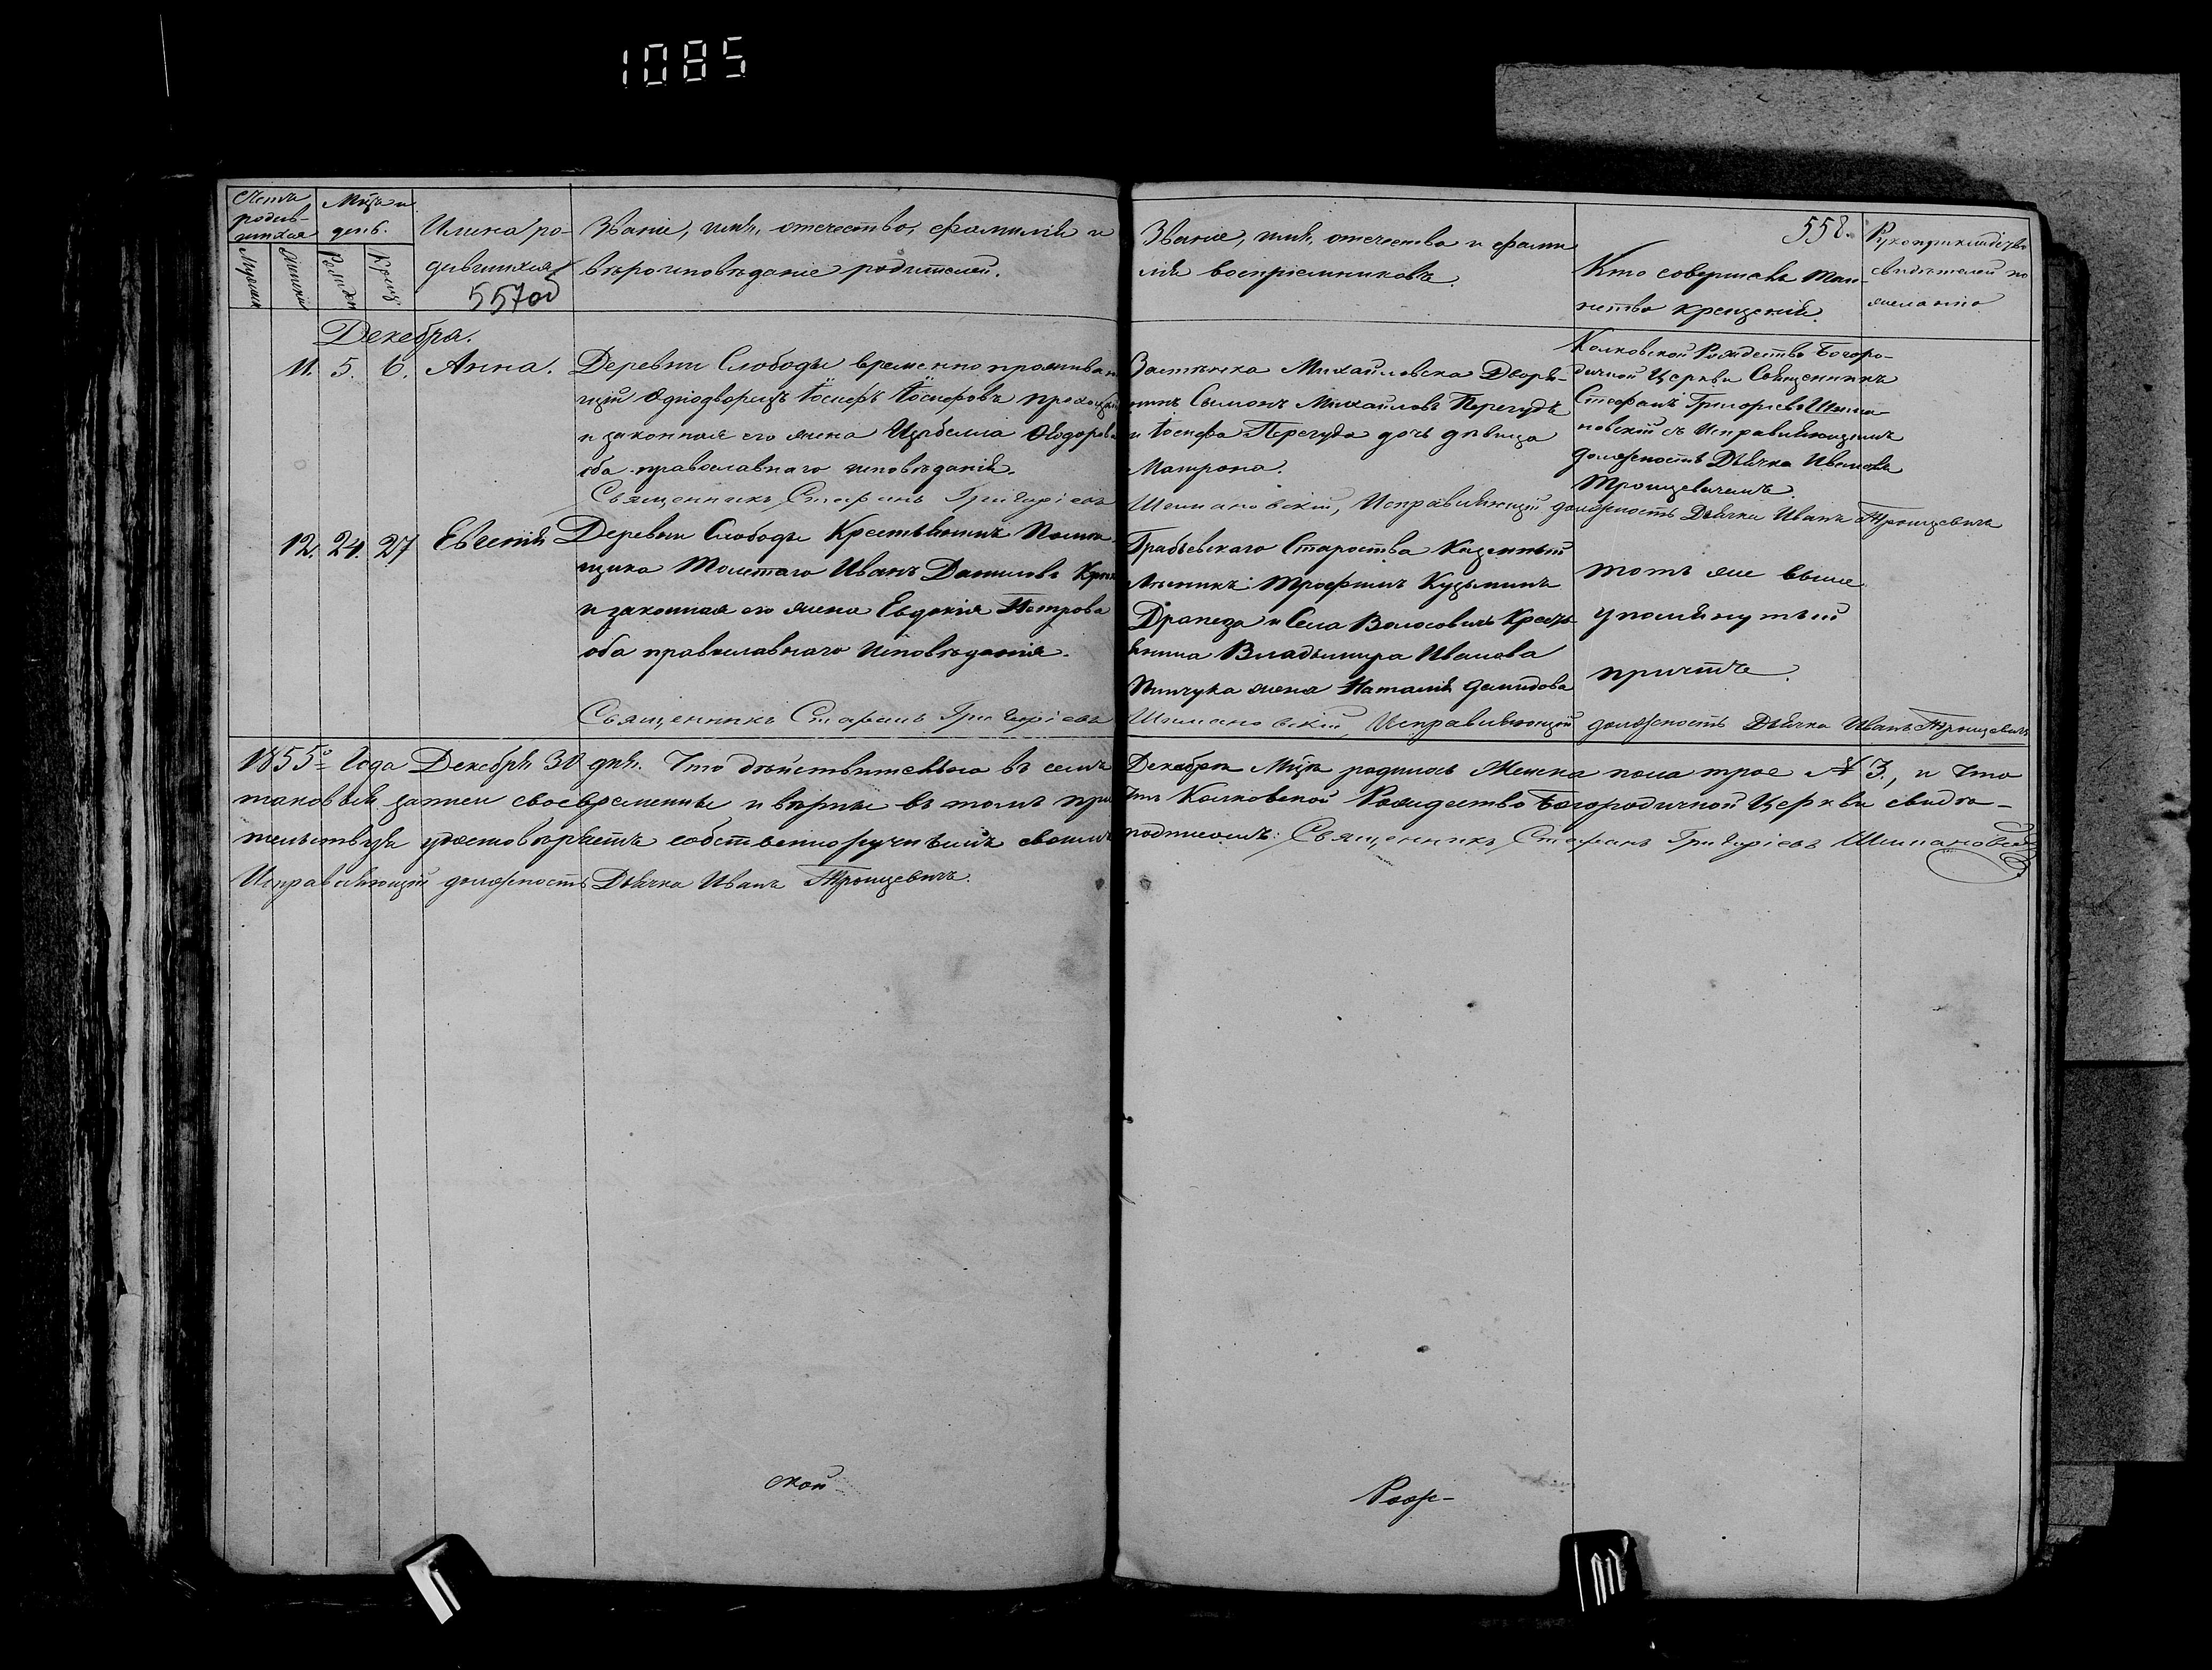 1085
Счетъ родив- шихся
Мѣсяцъ и день.
Мужеска
Женска
Рожден
Крещ.
Имена ро-
дившихся
557 об
Званіе, имя, отечество, фамилія и
вѣроисповѣданіе родителей.
Званіе, имя, отечество и фами
лія воспріемниковъ.
558.
Кто совершалъ таин-
ство крещенія.
Рукоприкладство
свидѣтелей по
желанію
Декабря.
11. 5. 6. Анна.
Деревни Слободы временно прожива
щій Однодворецъ Іосифъ Іосифовъ
и законная его жена Изабелла Ѳеодорова
оба православнаго исповѣданія.
Священникъ Стефанъ Григоріевъ
Застѣнка Михайловска Дворя-
нинъ Сымонъ Михайловъ Перегудъ
и Іосифа Перегуда дочь дѣвица
Матрона.
Шимановскій, Исправляющій должность Дьячка Иванъ Троицевичъ
Колковской Рождество Богоро-
дичной Церкви Священникъ
Стефанъ Григорьевъ Шима
новскій съ Исправляющимъ
должность Дьячка Иваномъ
Троицевичемъ.
12. 24. 27 Евгенія
Деревни Слободы Крестьянинъ Помѣ
щика Толстаго Иванъ Даниловъ
и законная его жена Евдокія Петрова
оба православнаго исповѣданія.
Священникъ Стефанъ Григоріевъ
Грабьевскаго Староства Казенный
Лѣсникъ Трофимъ Кузьминъ
Драпеза и Села Волосовичъ Крестъ
янина Владыміра Иванова
Пинчука жена Наталія Демидова
Шимановскій, Исправляющій должность Дьячка Иванъ Троицевичъ
тотъ же выше
упомянутый
причтъ.
1855го Года Декабря 30 дня. Что дѣйствительно въ семъ Декабрѣ Мцѣ родилось Женска пола трое № 3., и что
таковыя записи своевременны и вѣрны въ томъ при чтъ Колковской Рождество Богородичной Церкви свидѣ-
тельствуя удостовѣряетъ собственноручнымъ своимъ подписомъ: Священникъ Стефанъ Григоріевъ Шимановскій
Исправляющій должность Дьячка Иванъ Троицевичъ.
ской
Рож-